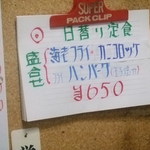 SUPER
PACK CLIP
日替り定食
盛合せ
海老フライ・カニコロッケ
ハンバーグ
¥650